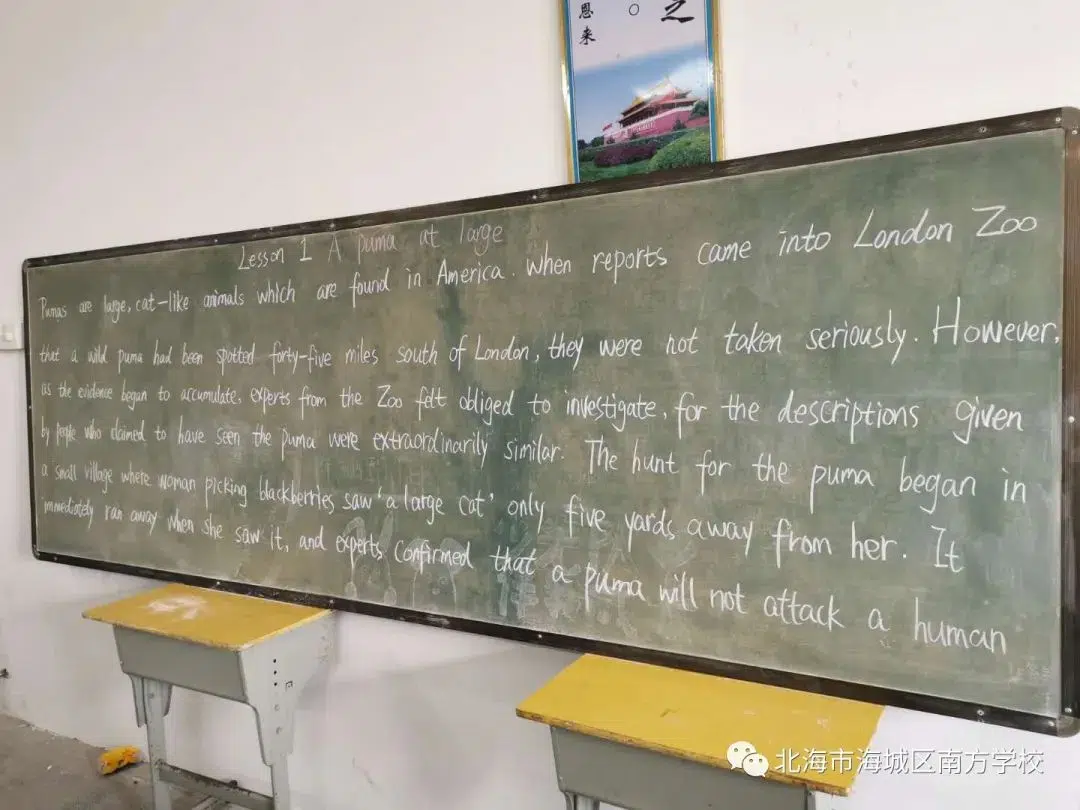 恩 之
来
Lesson 1 A puma at large
Pumas are large, cat-like animals which are found in America. When reports came into London Zoo
that a wild puma had been spotted forty-five miles south of London, they were not taken seriously. However,
as the evidence began to accumulate, experts from the Zoo felt obliged to investigate, for the descriptions given
by people who claimed to have seen the puma were extraordinarily similar. The hunt for the puma began in
a small village where woman picking blackberries saw 'a large cat' only five yards away from her. It
immediately ran away when she saw it, and experts confirmed that a puma will not attack a human
北海市海城区南方学校